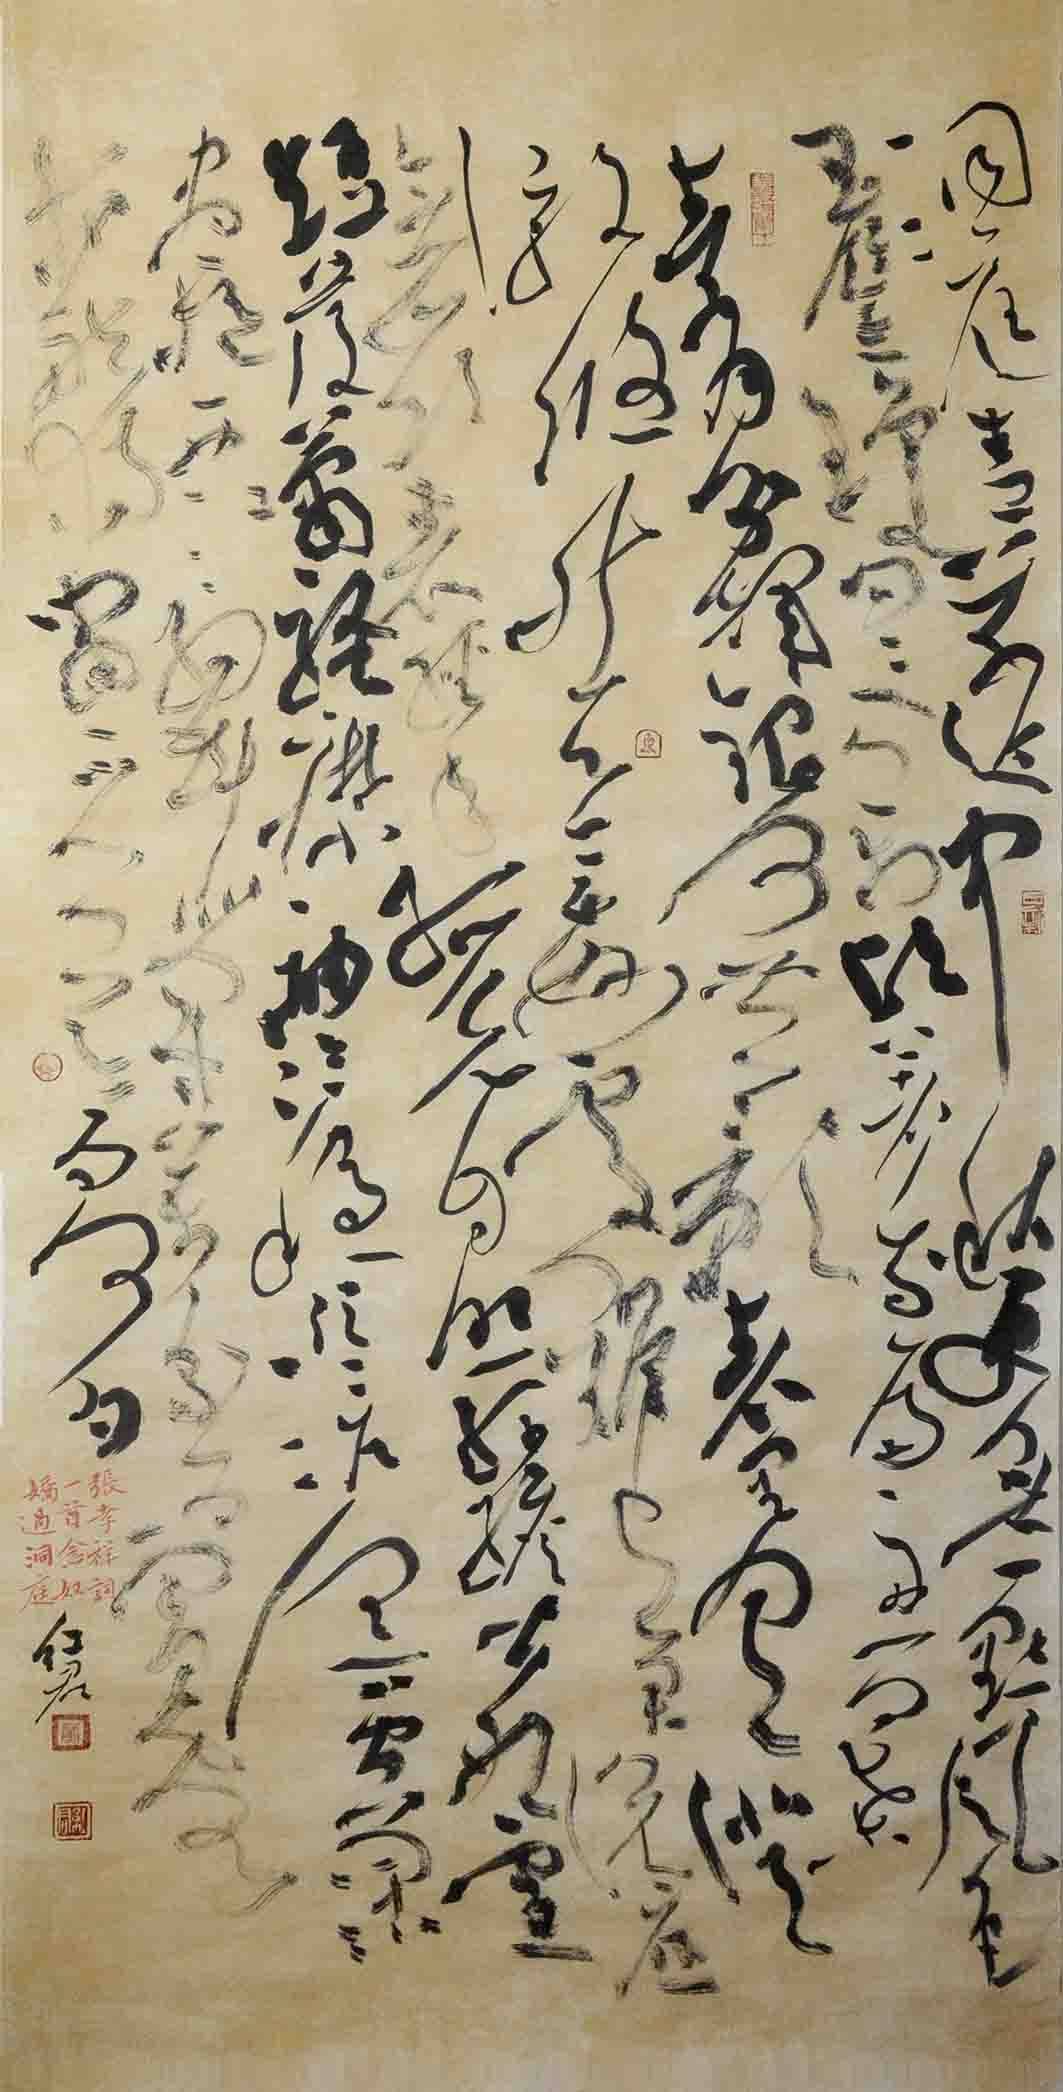 洞庭青草近中秋更無一點風色
玉鑒瓊田三萬頃著我扁舟一葉
素月分輝銀河共影表裏俱澄
澈悠然心會妙處難與君說應
念嶺表經年孤光自照肝膽皆冰雪
短髮蕭騷襟袖冷穩泛滄溟空闊
盡挹西江細斟北斗萬象為賓客
扣舷獨嘯不知今夕何夕
張孝祥詞
一首念奴
嬌過洞庭
紅君